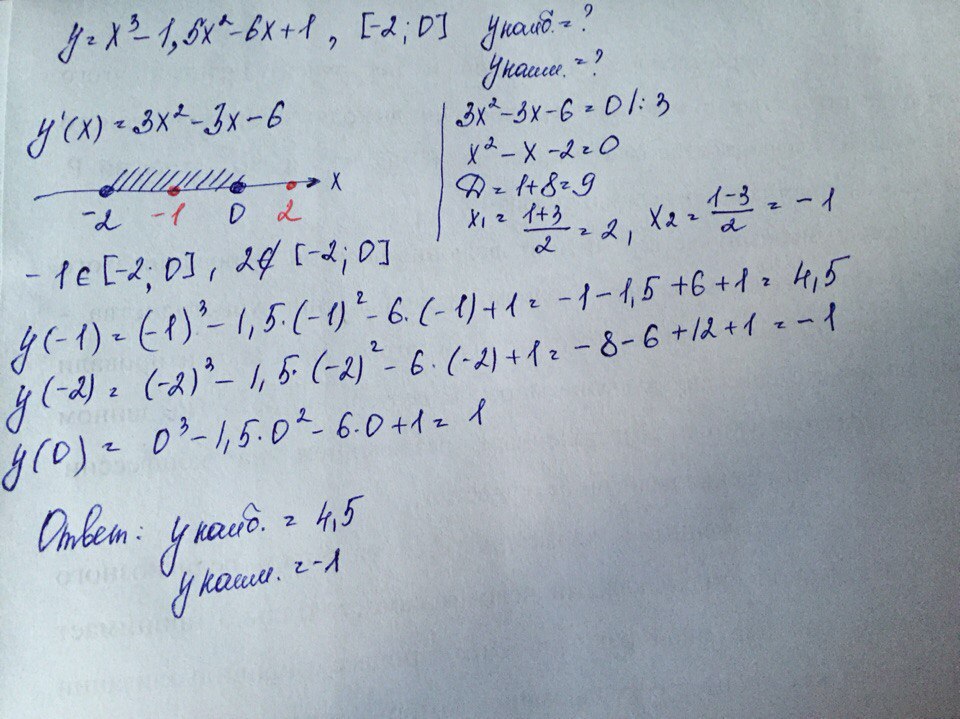 y = x³ - 1,5x² - 6x + 1 , [-2; 0] y наиб. = ?
y наим. = ?
y'(x) = 3x² - 3x - 6
-2 -1 0 2 x
3x² - 3x - 6 = 0 |: 3
x² - x - 2 = 0
D = 1 + 8 = 9
x₁ = (1+3)/2 = 2, x₂ = (1-3)/2 = -1
-1 ∈ [-2; 0] , 2 ∉ [-2; 0]
y(-1) = (-1)³ - 1,5·(-1)² - 6·(-1) + 1 = -1 - 1,5 + 6 + 1 = 4,5
y(-2) = (-2)³ - 1,5·(-2)² - 6·(-2) + 1 = -8 - 6 + 12 + 1 = -1
y(0) = 0³ - 1,5·0² - 6·0 + 1 = 1
Ответ: y наиб. = 4,5
y наим. = -1